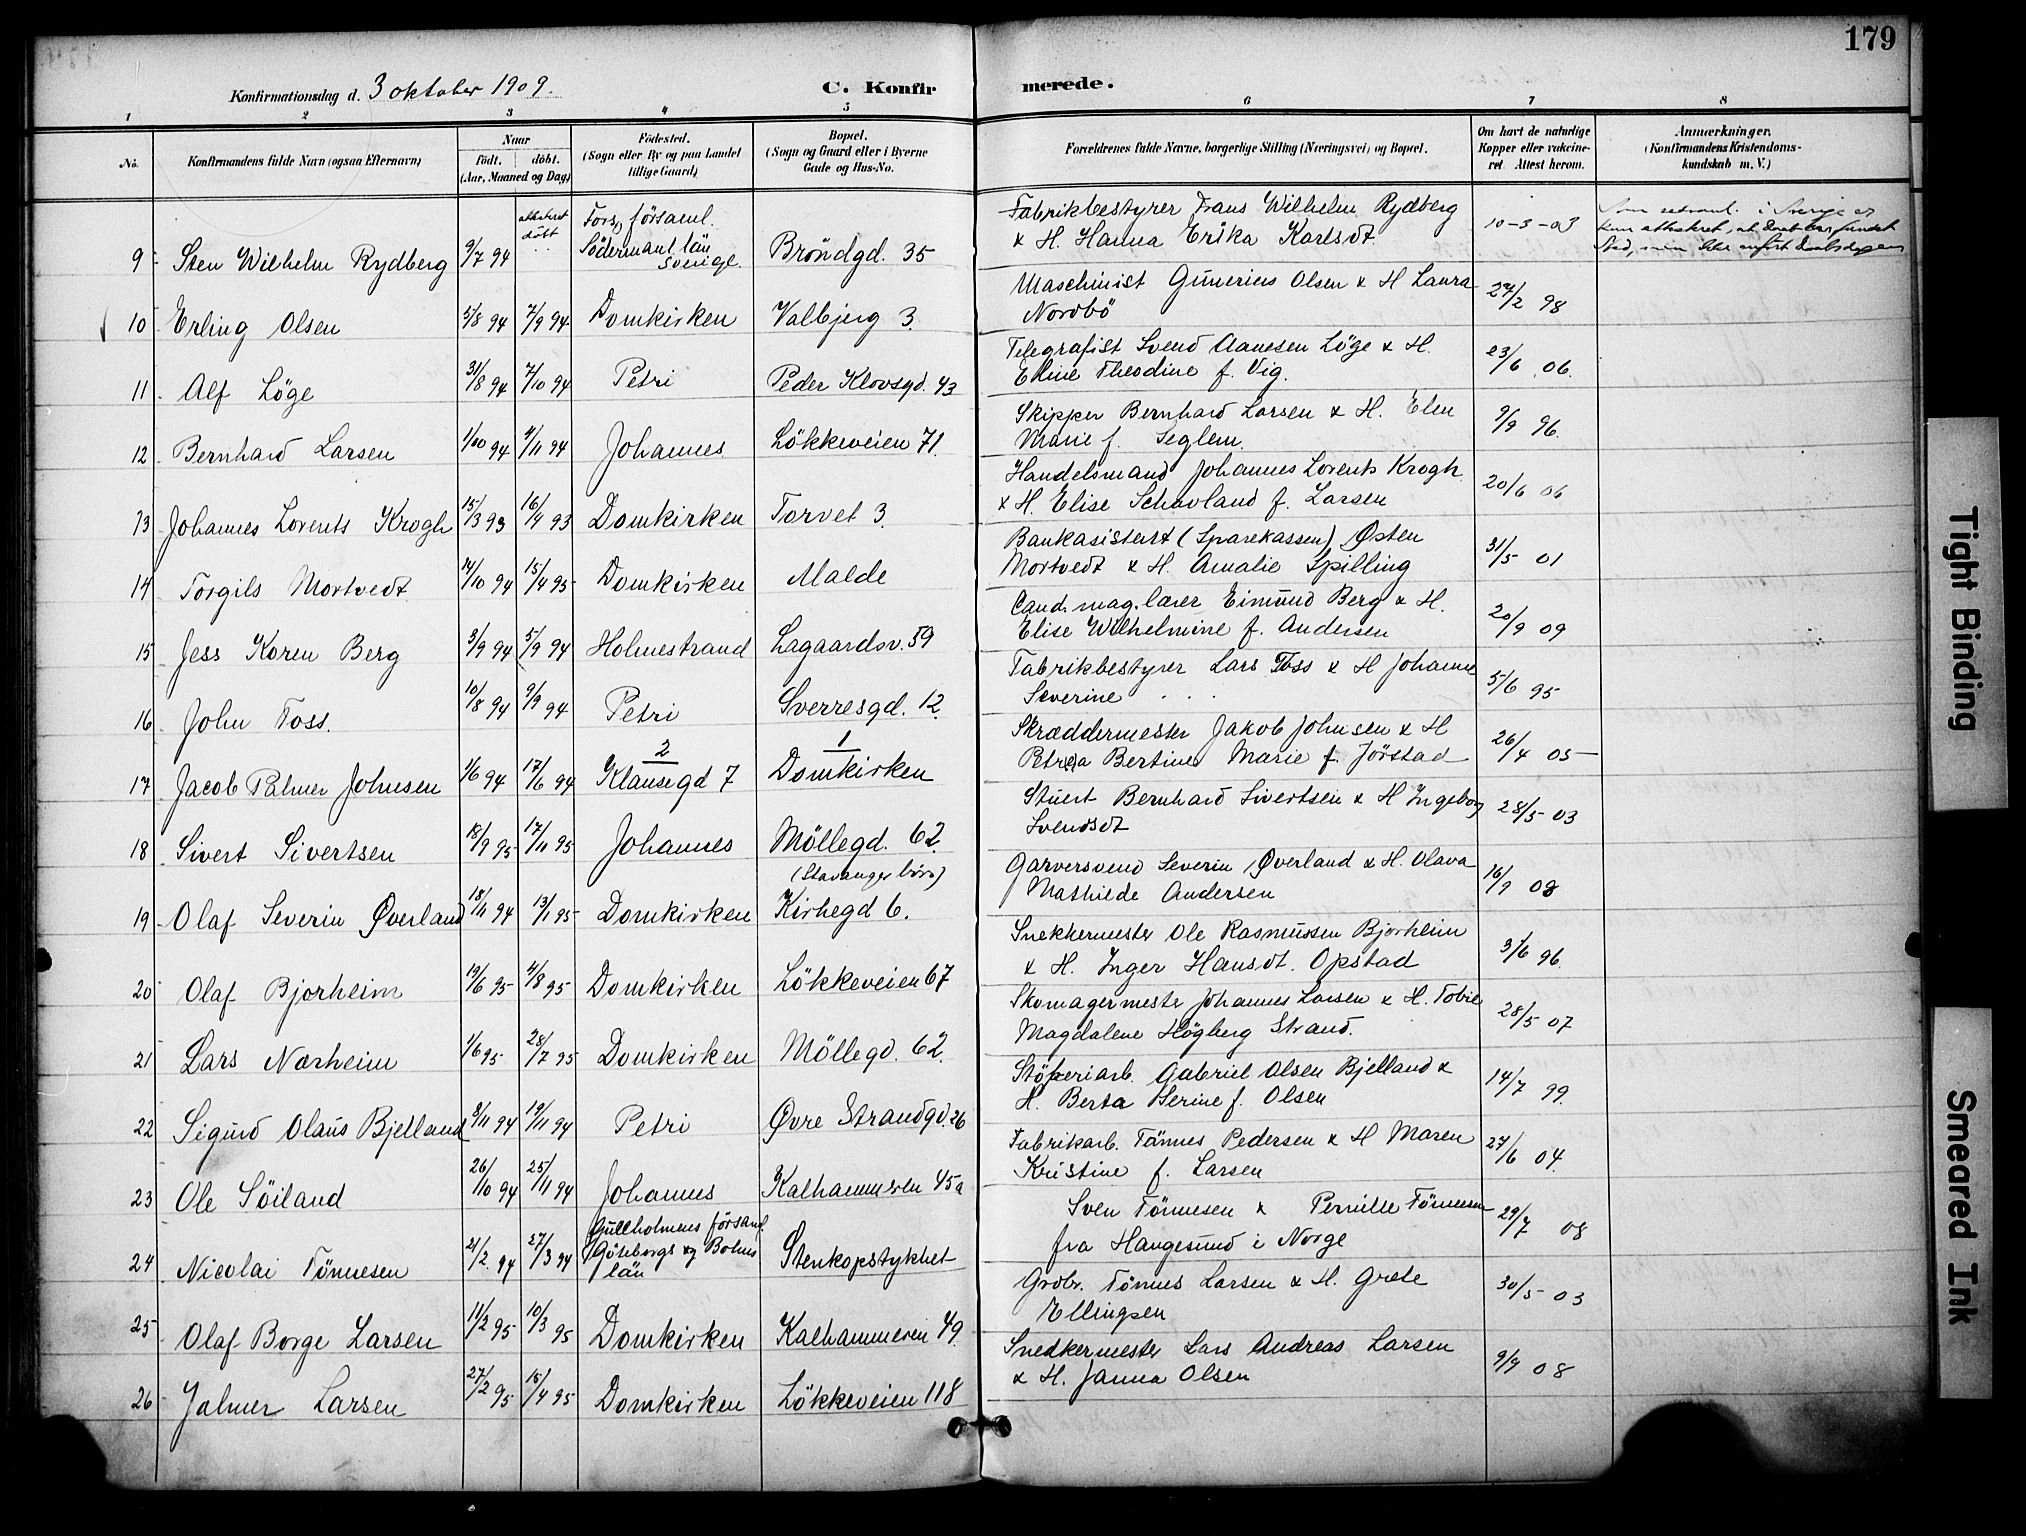 179
Konfirmationsdag d. 3 oktober 1909.
C. Konfirmerede.
1 2 3 4 5 6 7 8
No.
Konfirmandens fulde Navn (ogsaa Efternavn)
Naar
født. døbt.
(Aar, Maaned og Dag)
Födested.
(Sogn eller By og paa Landet
tillige Gaard)
Bopæl.
(Sogn og Gaard eller i Byerne
Gade og Hus-No.
Forældrenes fulde Navne, borgerlige Stilling (Næringsvei) og Bopæl.
Om havt de naturlige
Kopper eller vakcine-
ret. Attest herom.
Anmærkninger.
(Konfirmandens Kristendoms-
kundskab m. V.)
9 Sten Wilhelm Rydberg 9/7 94 attesteret døbt Fors, församl. Södermanl. län Sverige. Bröndgd. 35 Fabrikbestyrer Frans Wilhelm Rydberg
& H. Hanna Erika Karlsdt. 10-3-03
10 Erling Olsen 5/8 94 7/9 94 Domkirken Valbjerg 3. Maschinist Gunerius Olsen & H Laura
Nordbö 27/2 98
11 Alf Löge 31/8 94 7/10 94 Petri Peder Klovsgd. 43 Telegrafist Svend Aanesen Löge & H.
Elline Theodine f. Vig. 23/6 06.
12 Bernhard Larsen 1/10 94 4/11 94 Johannes Lökkeveien 71. Skipper Bernhard Larsen & H. Elen
Marie f. Seglem. 9/9 96.
13 Johannes Lorents Krogh 15/3 93 16/4 93 Domkirken Torvet 3. Handelsmand Johannes Lorents Krogh
& H. Elise Schavland f. Larsen 20/6 06
14 Torgils Mortvedt 14/10 94 15/4 95 Domkirken Malde Bankasistent (Sparekassen) Østen
Mortvedt & H. Amalie Spilling 31/5 01
15 Jess Koren Berg 3/9 94 5/9 94 Holmestrand Lagaardsv. 59 Cand. mag. lærer Eimund Berg & H.
Elise Wilhelmine f. Andersen 20/9 09
16 John Foss. 10/8 94 9/9 94 Petri Sverresgd. 12. Fabrikbestyrer Lars Foss & H Johanne
Severine . . . 5/6 95
17 Jacob Palmer Johnsen 1/6 94 17/6 94 2 Klausegd 7 1 Domkirken Skræddermester Jakob Johnsen & H
Petrea Bertine Marie f. Jörstad 26/4 05
18 Sivert Sivertsen 18/9 95 17/11 95 Johannes Möllegd. 62. Stuert Bernhard Sivertsen & H Ingeborg
Svendsdt 28/5 03
19 Olaf Severin Øverland 18/11 94 13/1 95 Domkirken (Stavanger börs) Kirkegd 6. Garversvend Severin Øverland & H. Olava
Mathilde Andersen 16/9 08
20 Olaf Bjorheim 19/6 95 4/8 95 Domkirken Lökkeveien 67 Snekkermester Ole Rasmussen Bjorheim
& H. Inger Hansdt. Opstad 3/6 96.
21 Lars Nærheim 1/6 95 28/7 95 Domkirken Möllegd. 62. Skomagermester Johannes Larsen & H. Tobie
Magdalene Högberg Strand. 28/5 07
22 Sigurd Olaus Bjelland 3/11 94 19/11 94 Petri Øvre Strandgd. 26 Støberiarb. Gabriel Olsen Bjelland &
H. Berta Serine f. Olsen 14/7 99.
23 Ole Söiland 26/10 94 25/11 94 Johannes Kalhammeren 45a Fabrikarb. Tönnes Pedersen & H Maren
Kristine f. Larsen 27/6 04.
24 Nicolai Tönnesen 21/2 94 27/3 94 Gullholmens församl. Göteborgs og Bohus län Stenkopstykket Sven Tönnesen & Pernille Tönnesen
fra Haugesund i Norge 29/7 08
25 Olaf Borge Larsen 11/2 95 10/3 95 Domkirken Kalhammeren 49. Grovr. Tönnes Larsen & H. Grete
Ellingsen 30/5 03
26 Jalmer Larsen 27/2 95 15/4 95 Domkirken Lökkeveien 118 Snedkermester Lars Andreas Larsen
& H. Janna Olsen 9/9 08
Tight Binding
Smeared Ink